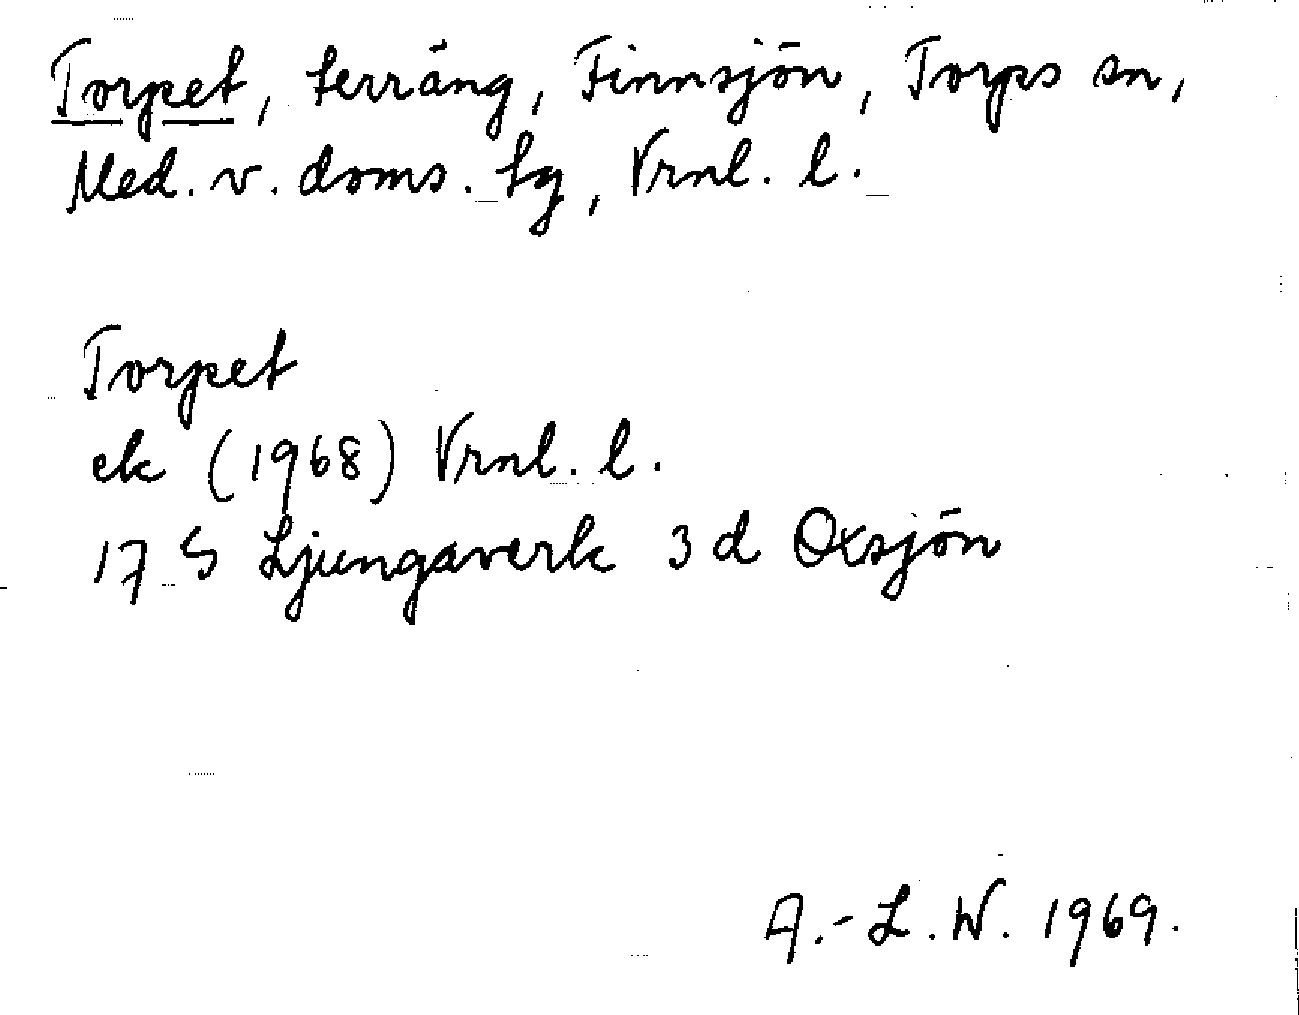 Torpet, terräng, Finnsjön, Torps sn,
Med. v. doms. tg, Vrnl. l.
Torpet
ek (1968) Vrnl. l.
17 S Ljungaverk 3 d Oxsjön
A.-L.W. 1969.